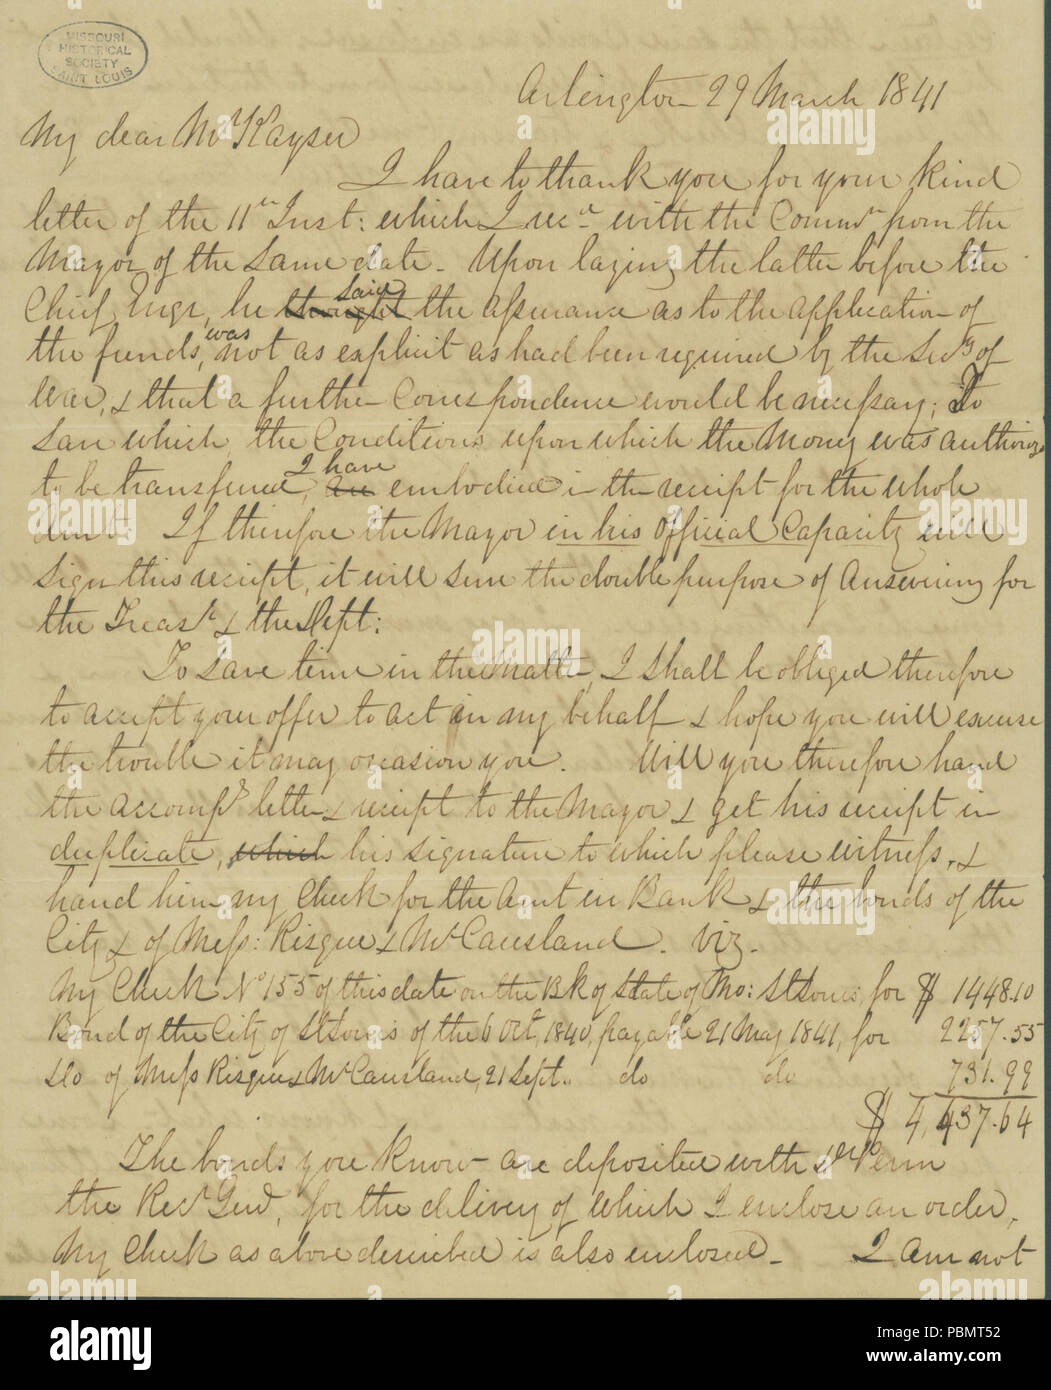 MISSOURI
HISTORICAL
SOCIETY
SAINT LOUIS
Arlington 29 March 1841
My dear Mr Kayser
I have to thank you for your kind
letter of the 11th Inst: which I recd with the Commn from the
Mayor of the same date - Upon laying the latter before the
Chief Engr, he thought said the assurance as to the application of
the funds, was not as explicit as had been required by the Secy of
War, & that a further Correspondence would be necessary; To
save which, the Conditions upon which the money was authorized
to be transferred, I have embodied in the receipt for the whole
Amt: If therefore the Mayor in his Official Capacity will
sign this receipt, it will serve the double purpose of Answering for
the Treasy & the Dept:
To save time in the matter, I shall be obliged therefore
to accept your offer to act in my behalf & hope you will excuse
the trouble it may occasion you. Will you therefore hand
the accompg letter & receipt to the Mayor & get his receipt in
duplicate, which his signature to which please witness, &
hand him my Check for the Amt in Bank & the bonds of the
City & of Mess: Risque & McCausland. Viz -
My Check No 155 of this date on the Bk of State of Mo: St Louis, for $ 1448.10
Bond of the City of St Louis of the 6 Oct, 1840, payable 21 May 1841, for 2257.55
Do of Mess Risque & McCausland, 21 Sept.. do do 731.99
$ 4,437.64
The bonds you know are deposited with Dr Penn
the Recr Genl, for the delivery of which I enclose an order,
My Check as above described is also enclosed - I am not
alamy
alamy
alamy
alamy
Image ID: PBMT52
www.alamy.com